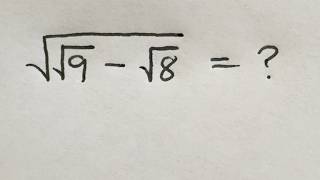 √(√9 - √8) = ?